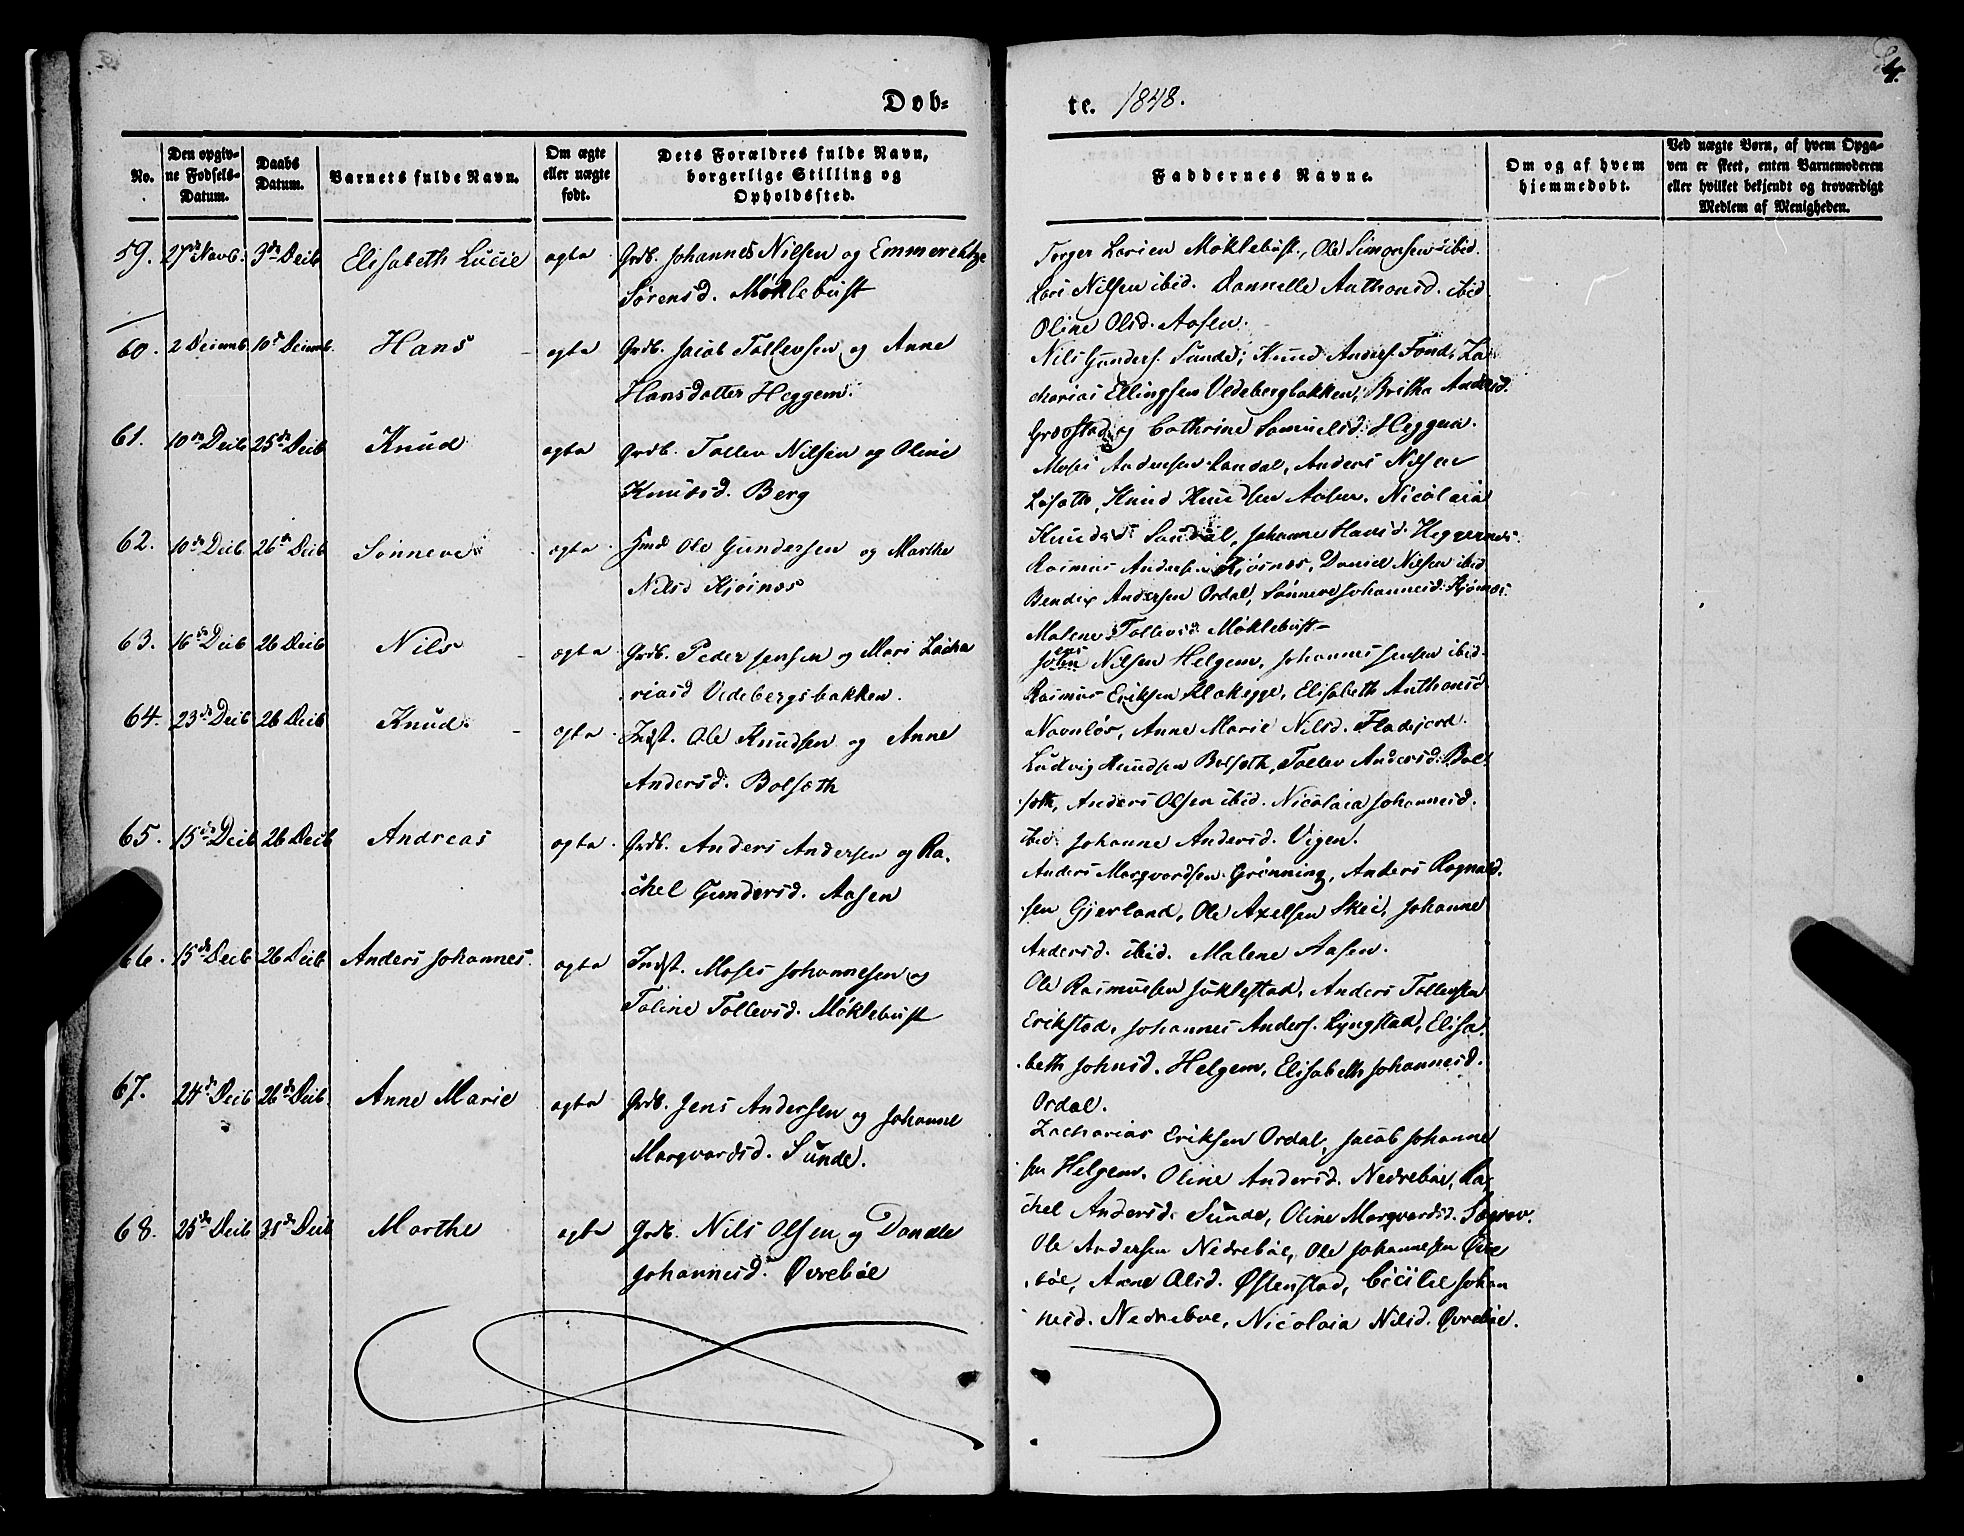 Dob=
te. 1848.
4.
No.
Den opgiv-
ne Fødsels-
Datum.
Daabs
Datum.
Barnets fulde Navn.
Om ægte
eller uægte
født.
Dets Forældres fulde Navn,
borgerlige Stilling og
Opholdssted.
Faddernes Navne.
Om og af hvem
hjemmedøbt.
Ved uægte Børn, af hvem Opga-
ven er skeet, enten Barnemoderen
eller hvilket bekjendt og troværdigt
Medlem af Menigheden.
59. 27de Novb. 3de Decb Elisabeth Lucie ægta Grdb. Johannes Nilsen og Emmerentze
Sørensd. Møklebust
60. 2 Decmb. 10de Decmb. Hans ægta Grdb. Jacob Tollevsen og Anne
Hansdatter Heggem.
61. 10de Decb 25de Decb Knud ægta Grdb. Tollev Nilsen og Oline
Knutsd. Berg
62. 10de Decb 26de Decb Sønneve ægta Hmd Ole Gundersen og Marthe
Nilsd Kjøsnæs
63. 16de Decb 26 Decb Nils ægta Grdb. Peder Jensen og Mari Zacha
riasd Vedebergsbakken.
64. 23de Decb 26 Decb Knud. ægta Indst. Ole Knudsen og Anne
Andersd. Bolsæth
65. 15de Decb 26 Decb Andreas ægta Grdb. Anders Andersen og Ra,
chel Gundersd. Aasen
66. 15de Decb 26 Decb Anders Johannes. ægta Indst. Moses Johannesen og
Taline Tollevsd. Møklebust
67. 24de Decb 26de Decb. Anne Marie ægta Grdb. Jens Andersen og Johanne
Marqvardsd. Sunde.
68. 25de Decb 31de Decb Marthe ægta Grdb. Nils Olsen og Danele
Johannesd. Øvrebøe
Torger Larsen Møklebust, Ole Simonsen ibid.
Lars Nilsen ibid. Dannelle Anthonsd. ibid
Oline Olsd. Aasen.
Nils Gunders. Sunde, Knud Anders. Fond, Za
charias Ellingsen Vedebergbakken, Britha Andersd.
Grævstad og Cathrine Samuelsd. Heggem.
Moses Andersen Sandal, Anders Nilsen
Knud Knudsen Aasen. Nicolaia
Knudsd. Sandal, Johanne Hansd. Heggernæs.
Rasmus Anders. Kjøsnæs, Daniel Nilsen ibid
Bendix Andersen Ordal, Sønneve Johannesd. Kjøsnæs.
Malene Tollevsd. Møklebust
Nilsen Helgem, Johannes Jensen ibid.
Rasmus Eriksen Klakegge, Elisabeth Anthonsd
Navnløs, Anne Marie Nilsd. Fladejord.
Ludvig Knudsen Bolsæth, Tollev Andersd. Bol
sæth, Anders Olsen ibid. Nicolaia Johannesd.
ibid. Johanne Andersd. Vigen.
Anders Marqvardsen Grønning, Anders Ragnald.
sen Gjerland, Ole Axelsen Skei, Johanne
Andersd. ibid. Malene Aasen.
Ole Rasmusen Jøklestad, Anders Tollevsen
Erikstad, Johannes Anders. Lyngstad, Elisa
beth Johnsd. Helgem, Elisabeth Johannesd.
Ordal.
Zacharias Eriksen Ordal, Jacob Johanne
sen Helgem, Oline Andersd. Nedrebøe, Ra,
chel Andersd. Sunde, Oline Marqvardsd. Søgnev.
Ole Andersen Nedrebøe, Ole Johannesen Øvre
bøe, Anne Olsd. Østenstad, Cicilie Johan
nesd. Nedrebøe, Nicolaia Nilsd. Øvrebøe.